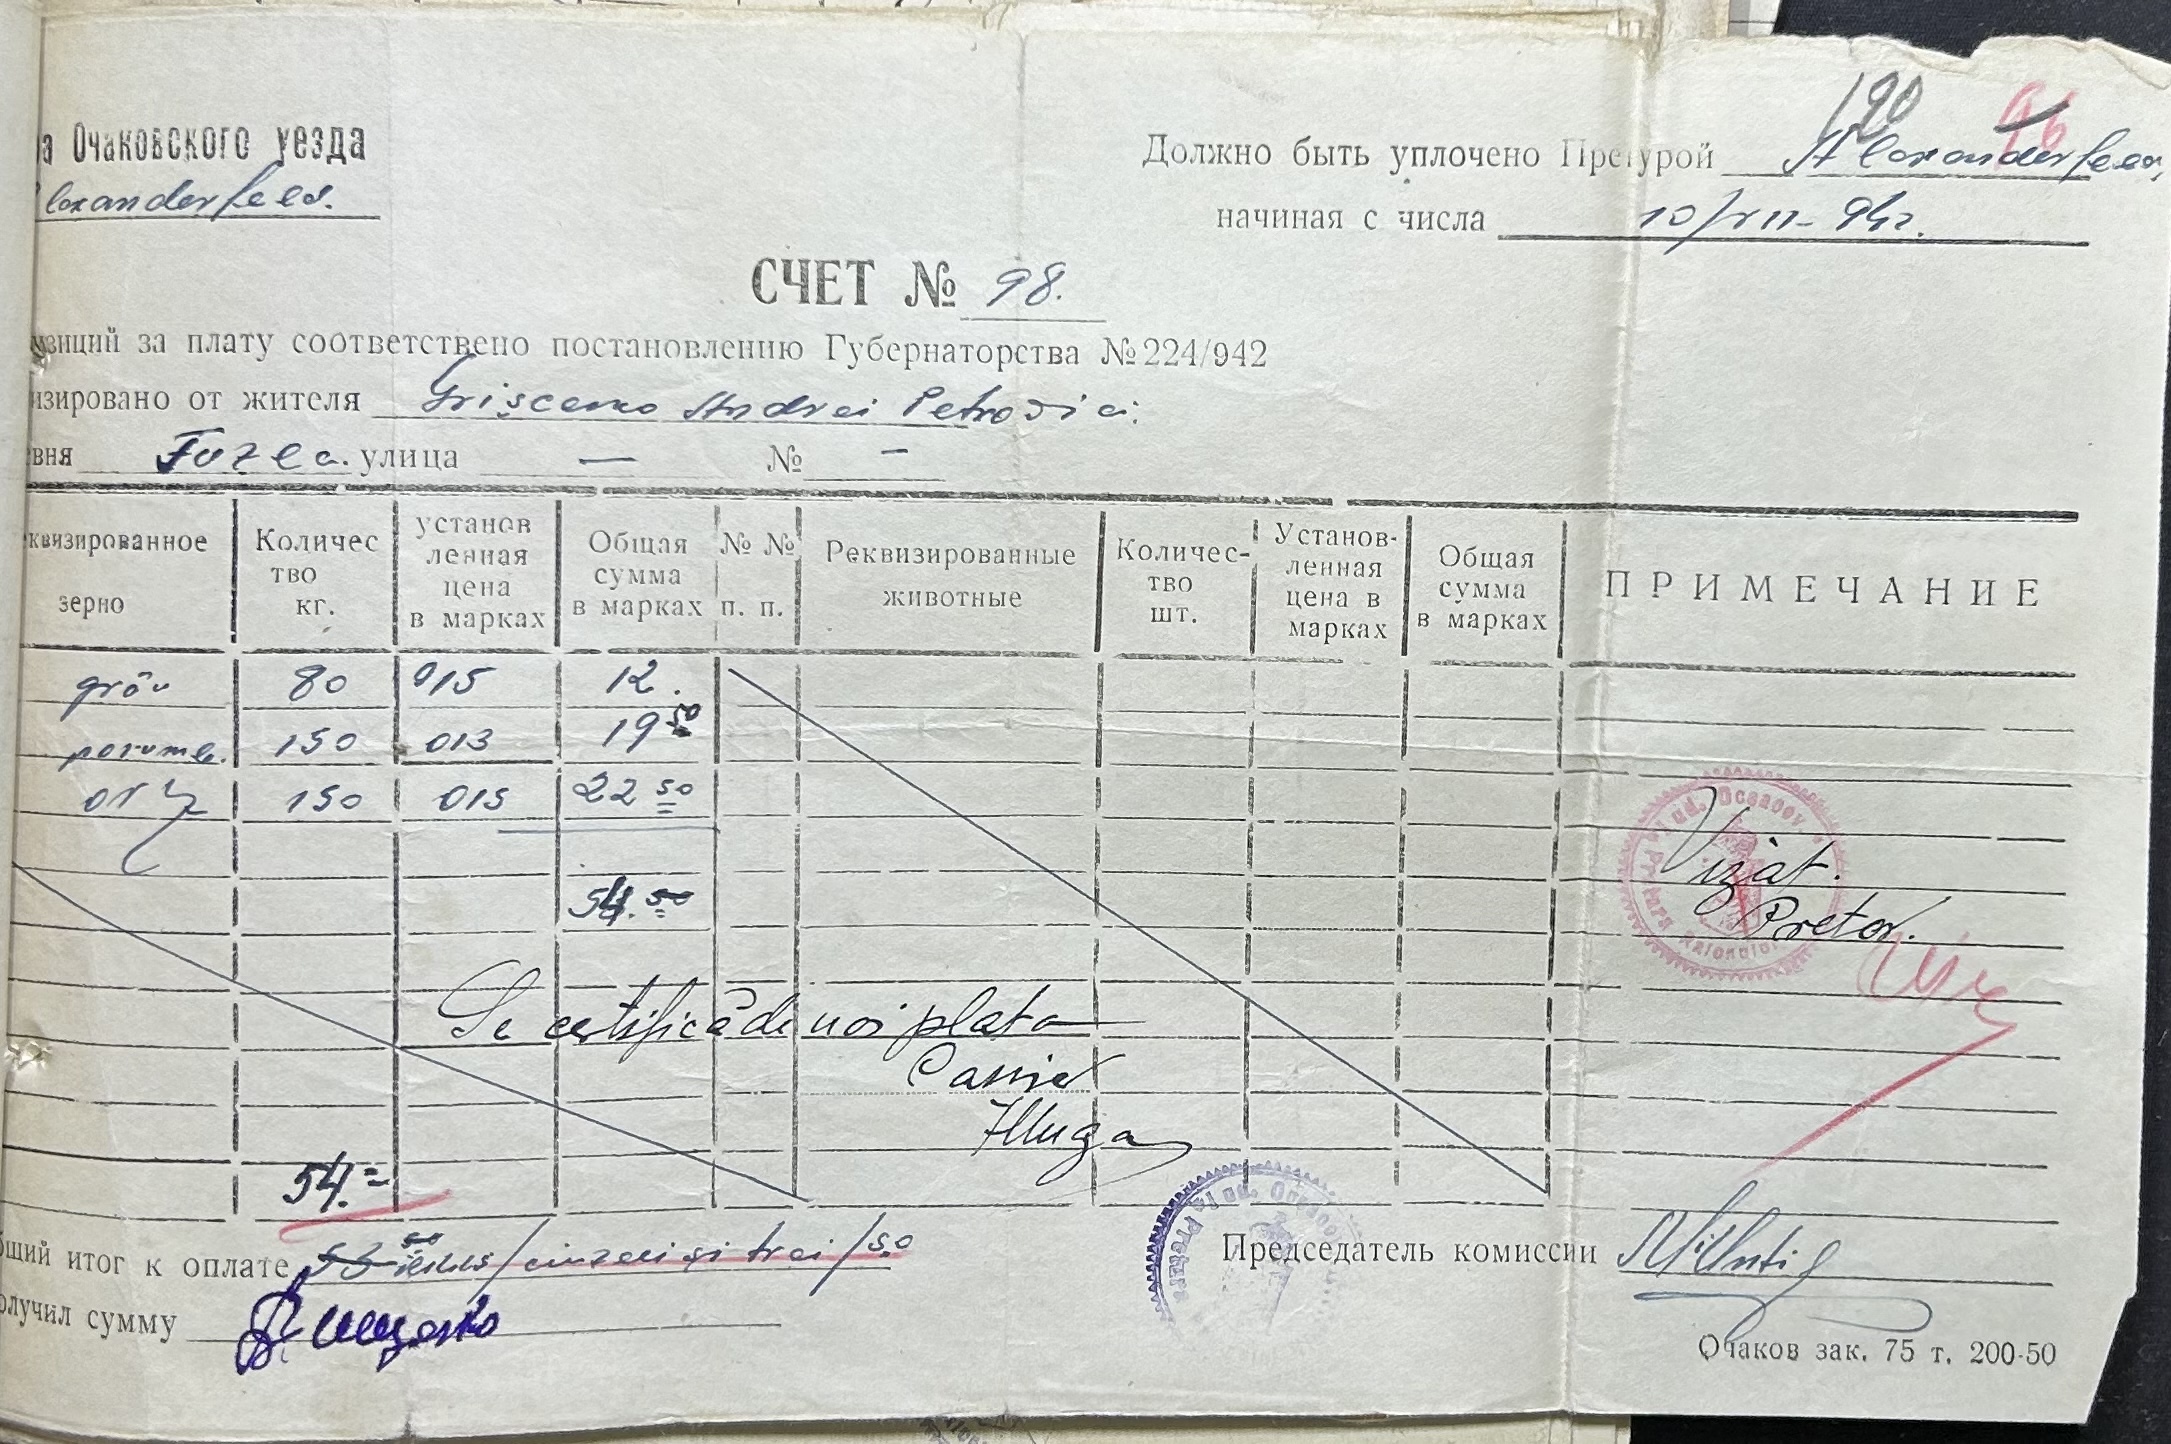 120 96
а Очаковского уезда
lexanderfeld.
Должно быть уплочено Претурой Alexanderfeld,
начиная с числа 10/VII-942.
СЧЕТ № 98.
зиций за плату соответствено постановлению Губернаторства № 224/942
изировано от жителя Grișcenco Andrei Petrovici.
вня Tuzla. улица — № -
квизированное зерно
Количество кг.
установленная цена в марках
Общая сумма в марках
№ № п. п.
Реквизированные животные
Количество шт.
Установленная цена в марках
Общая сумма в марках
ПРИМЕЧАНИЕ
grâu 80 015 12.
porumb. 150 013 19 50
orz 150 015 22 50
54.50
Vizat.
Pretor.
Se certifică de noi plata
Casier
54.=
бщий итог к оплате /cinzeci și trei/50
олучил сумму
Председатель комиссии
Очаков зак. 75 т. 200-50